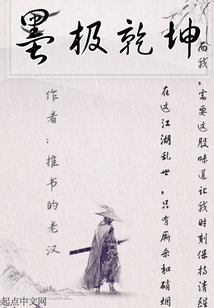 墨极乾坤
作者：推书的老汉
在这江湖乱世，只有厮杀和硝烟
而我，需要这股味道让我时刻保持清醒
起点中文网